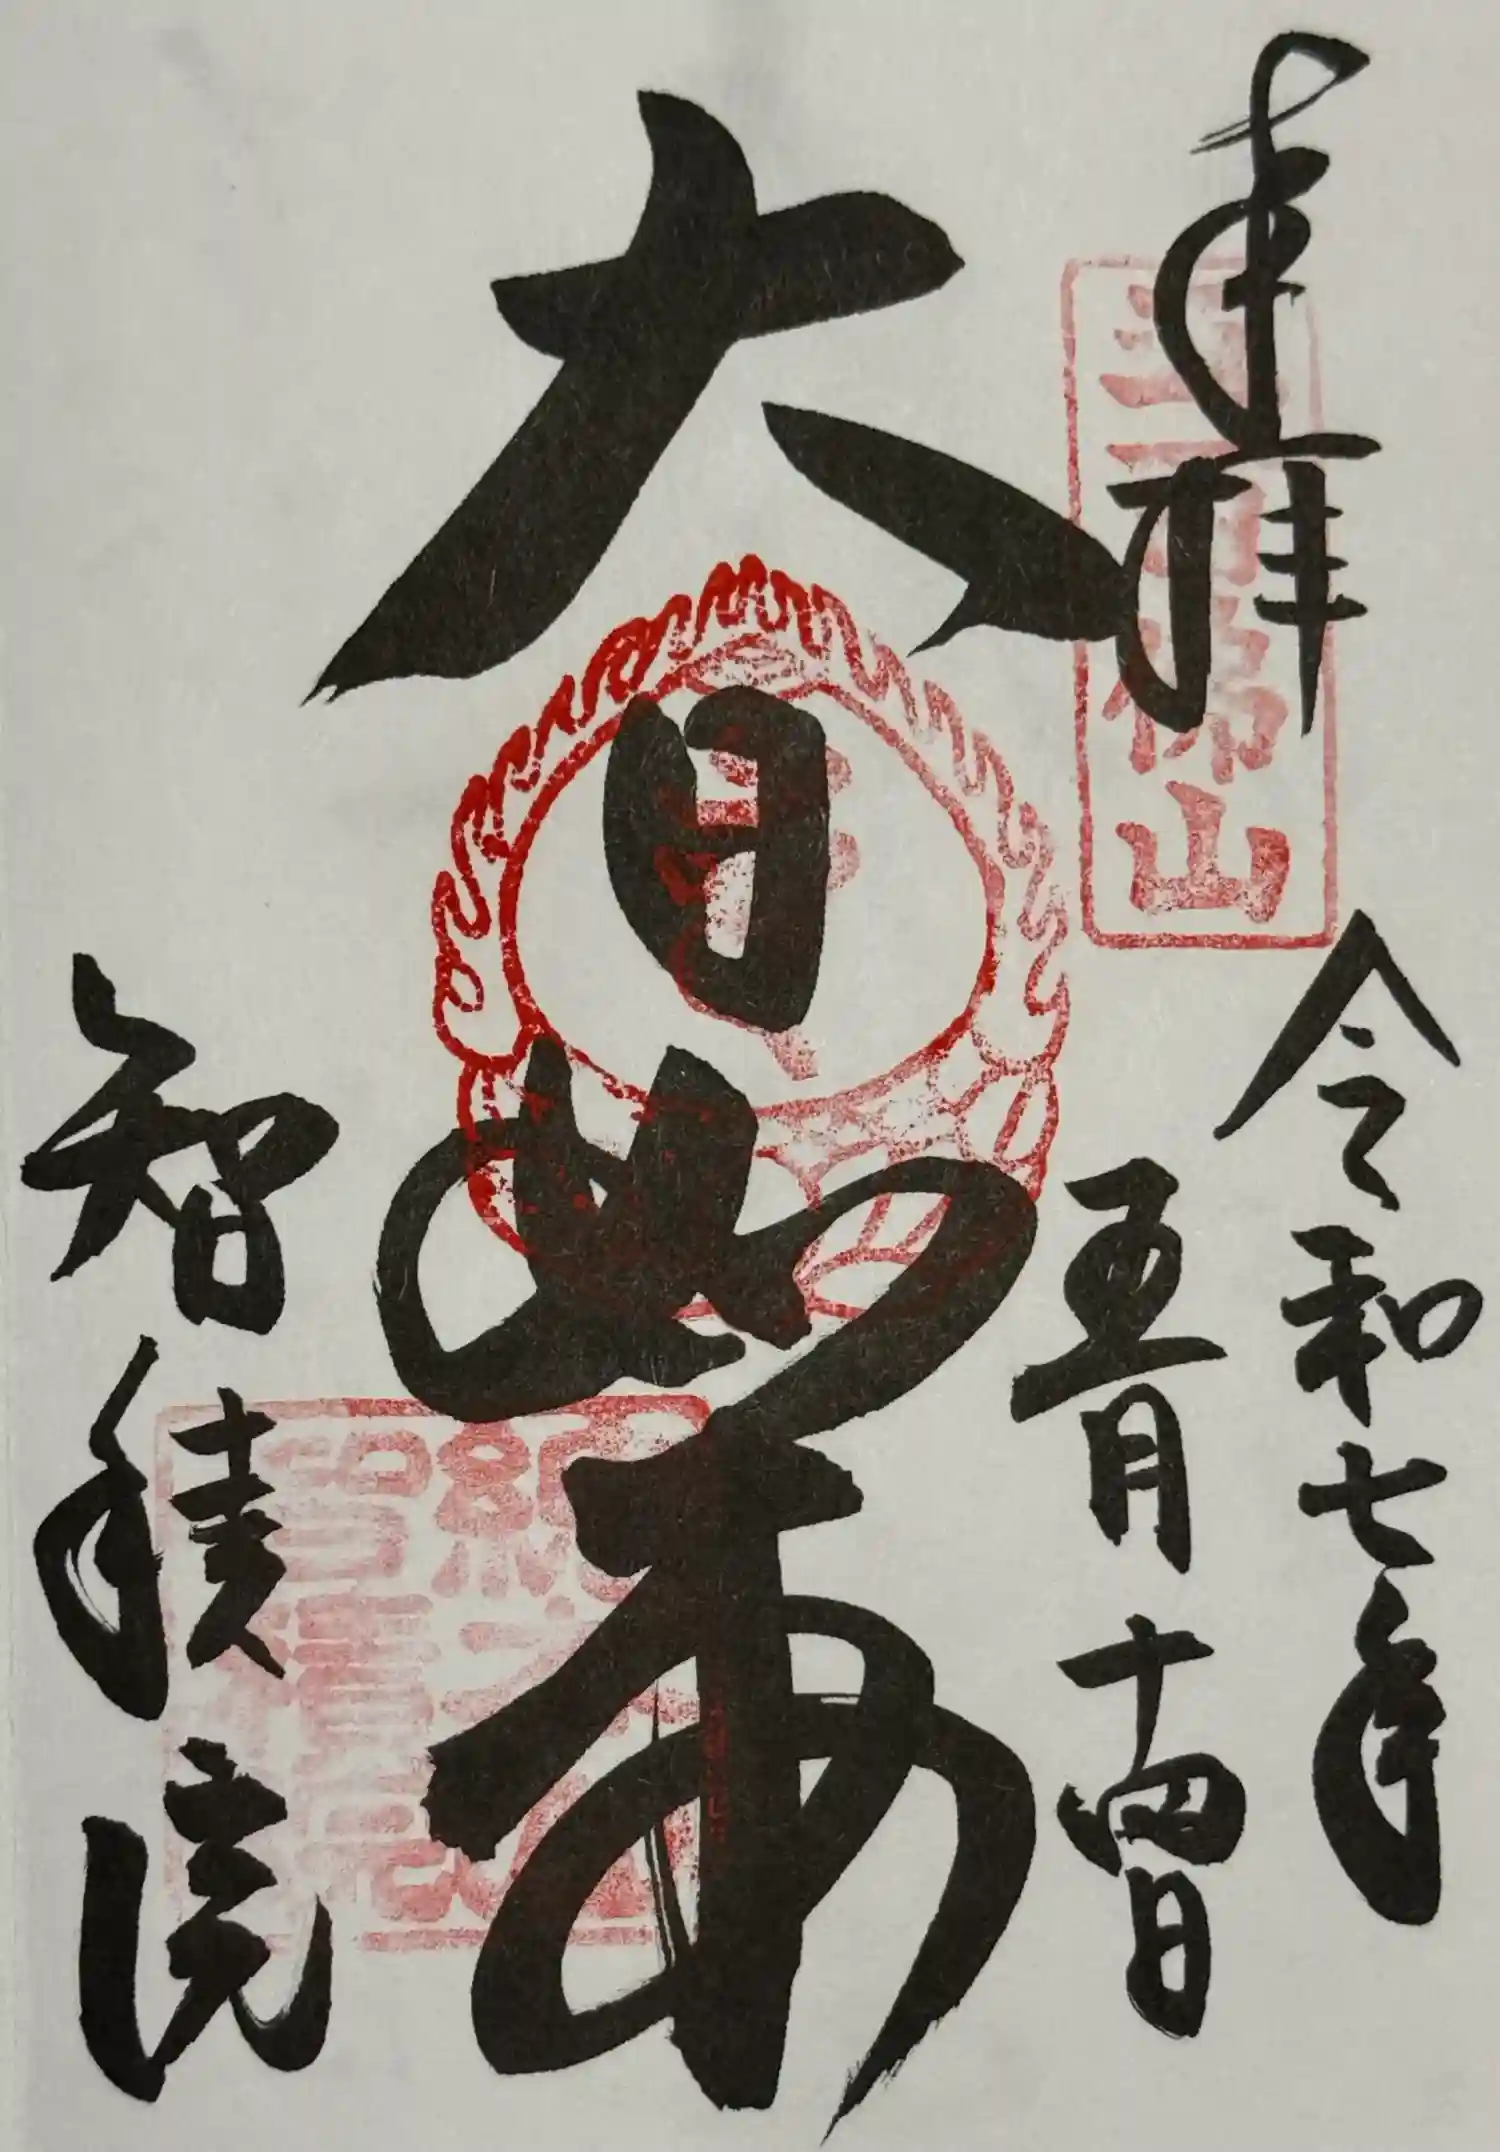 奉拝
五百佛山
令和七年
五月十四日
大日如来
智積院